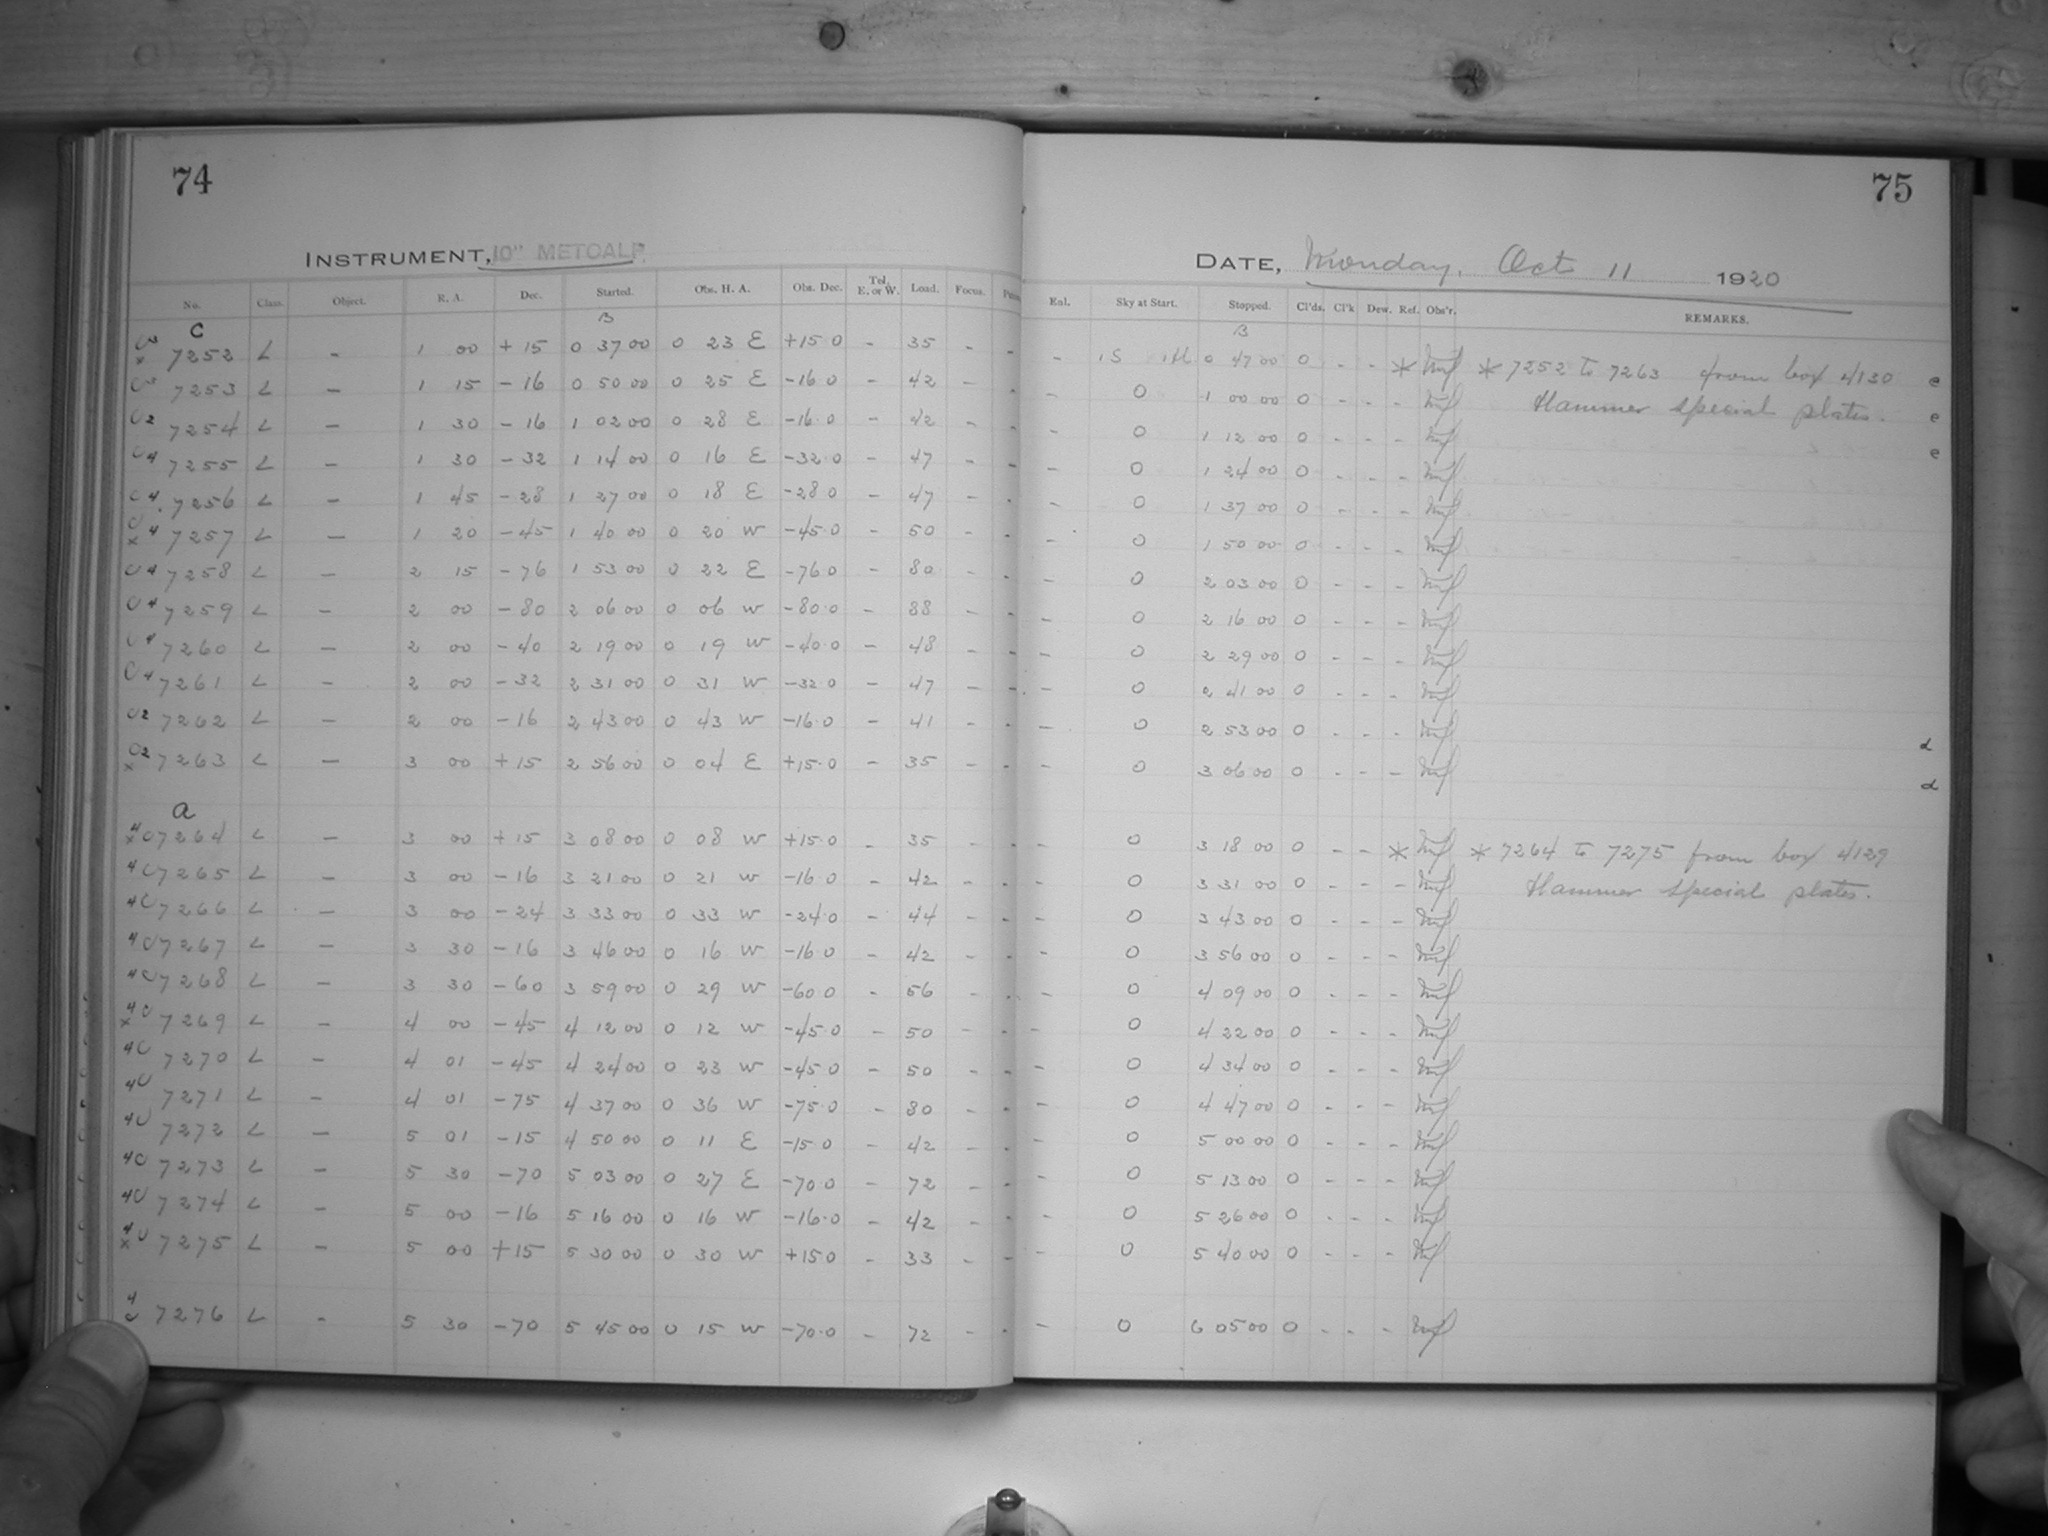 74
INSTRUMENT, 10" METCALF.
No. Class. Object. R. A. Dec. Started. Obs. H. A. Obs. Dec. Tel. E. or W. Load. Focus.
B
C
7252 L - 1 00 +15 0 37 00 0 23 E +15 0 - 35 - -
7253 L - 1 15 -16 0 50 00 0 25 E -16 0 - 42 - -
7254 L - 1 30 -16 1 02 00 0 28 E -16.0 - 42 - -
7255 L - 1 30 -32 1 14 00 0 16 E -32.0 - 47 - -
7256 L - 1 45 -28 1 27 00 0 18 E -28 0 - 47 - -
7257 L - 1 20 -45 1 40 00 0 20 W -45.0 - 50 - -
7258 L - 2 15 -76 1 53 00 0 22 E -76 0 - 80 - -
7259 L - 2 00 -80 2 06 00 0 06 W -80.0 - 88 - -
7260 L - 2 00 -40 2 19 00 0 19 W -40.0 - 48 - -
7261 L - 2 00 -32 2 31 00 0 31 W -32 0 - 47 - -
7262 L - 2 00 -16 2 43 00 0 43 W -16.0 - 41 - -
7263 L - 3 00 +15 2 56 00 0 04 E +15.0 - 35 - -
a
7264 L - 3 00 +15 3 08 00 0 08 W +15.0 - 35 - -
7265 L - 3 00 -16 3 21 00 0 21 W -16 0 - 42 - -
7266 L - 3 00 -24 3 33 00 0 33 W -24.0 - 44 - -
7267 L - 3 30 -16 3 46 00 0 16 W -16 0 - 42 - -
7268 L - 3 30 -60 3 59 00 0 29 W -60 0 - 56 - -
7269 L - 4 00 -45 4 12 00 0 12 W -45.0 - 50 - -
7270 L - 4 01 -45 4 24 00 0 23 W -45.0 - 50 - -
7271 L - 4 01 -75 4 37 00 0 36 W -75.0 - 80 - -
7272 L - 5 01 -15 4 50 00 0 11 E -15 0 - 42 - -
7273 L - 5 30 -70 5 03 00 0 27 E -70 0 - 72 - -
7274 L - 5 00 -16 5 16 00 0 16 W -16.0 - 42 - -
7275 L - 5 00 +15 5 30 00 0 30 W +15.0 - 33 - -
7276 L - 5 30 -70 5 45 00 0 15 W -70.0 - 72 - -
75
DATE, Monday, Oct 11 1920
Enl. Sky at Start. Stopped. Cl'ds. Cl'k Dew. Ref. Obs'r. REMARKS.
B
- 0 47 00 0 - - * * 7252 to 7263 from box 4130 e
- 0 1 00 00 0 - - - Hammer special plates. e
- 0 1 12 00 0 - - - e
- 0 1 24 00 0 - - -
- 0 1 37 00 0 - - -
- 0 1 50 00 0 - - -
- 0 2 03 00 0 - - -
- 0 2 16 00 0 - - -
- 0 2 29 00 0 - - -
- 0 2 41 00 0 - - -
- 0 2 53 00 0 - - - d
- 0 3 06 00 0 - - - d
- 0 3 18 00 0 - - * * 7264 to 7275 from box 4129
- 0 3 31 00 0 - - - Hammer special plates.
- 0 3 43 00 0 - - -
- 0 3 56 00 0 - - -
- 0 4 09 00 0 - - -
- 0 4 22 00 0 - - -
- 0 4 34 00 0 - - -
- 0 4 47 00 0 - - -
- 0 5 00 00 0 - - -
- 0 5 13 00 0 - - -
- 0 5 26 00 0 - - -
- 0 5 40 00 0 - - -
- 0 6 05 00 0 - - -